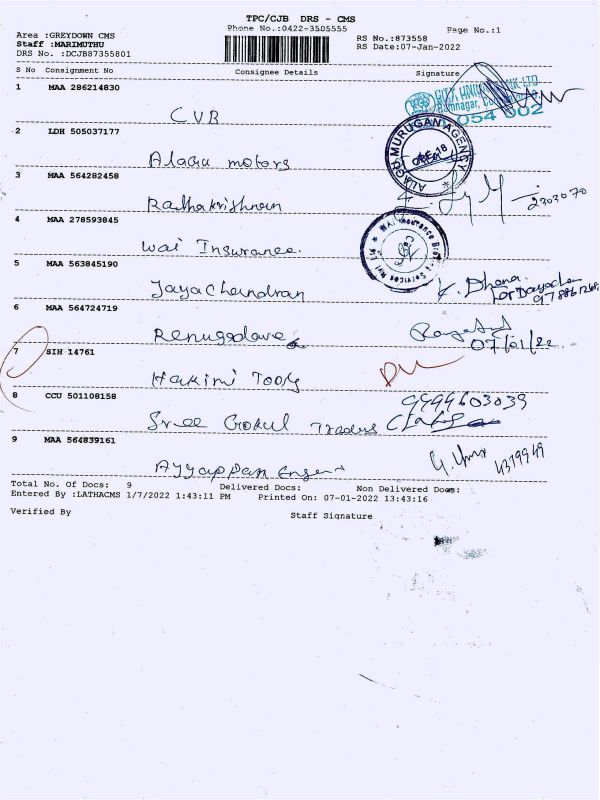 TPC/CJB DRS - CMS
Phone No.:0422-3505555
Page No.:1
Area :GREYDOWN CMS
Staff :MARIMUTHU
DRS No. :DCJB87355801
RS No.:873558
RS Date:07-Jan-2022
S No Consignment No Consignee Details Signature
1 MAA 286214830
CUB
054 002
2 LDH 505037177
Alagu motors
ALAGU MURUGAN AGENCY
3 MAA 564282458
Radhakrishnan
2303070
4 MAA 278593845
Wai Insurance.
5 MAA 563845190
Jayachandran
K. Dhana.
6 MAA 564724719
07/01/22.
7 SIH 14761
Hakimi Tools
8 CCU 501108158
9994603039
Sree Gokul Traders
9 MAA 564839161
Ayyappan
4379949
Total No. Of Docs: 9 Delivered Docs: Non Delivered Docs:
Entered By :LATHACMS 1/7/2022 1:43:11 PM Printed On: 07-01-2022 13:43:16
Verified By
Staff Signature